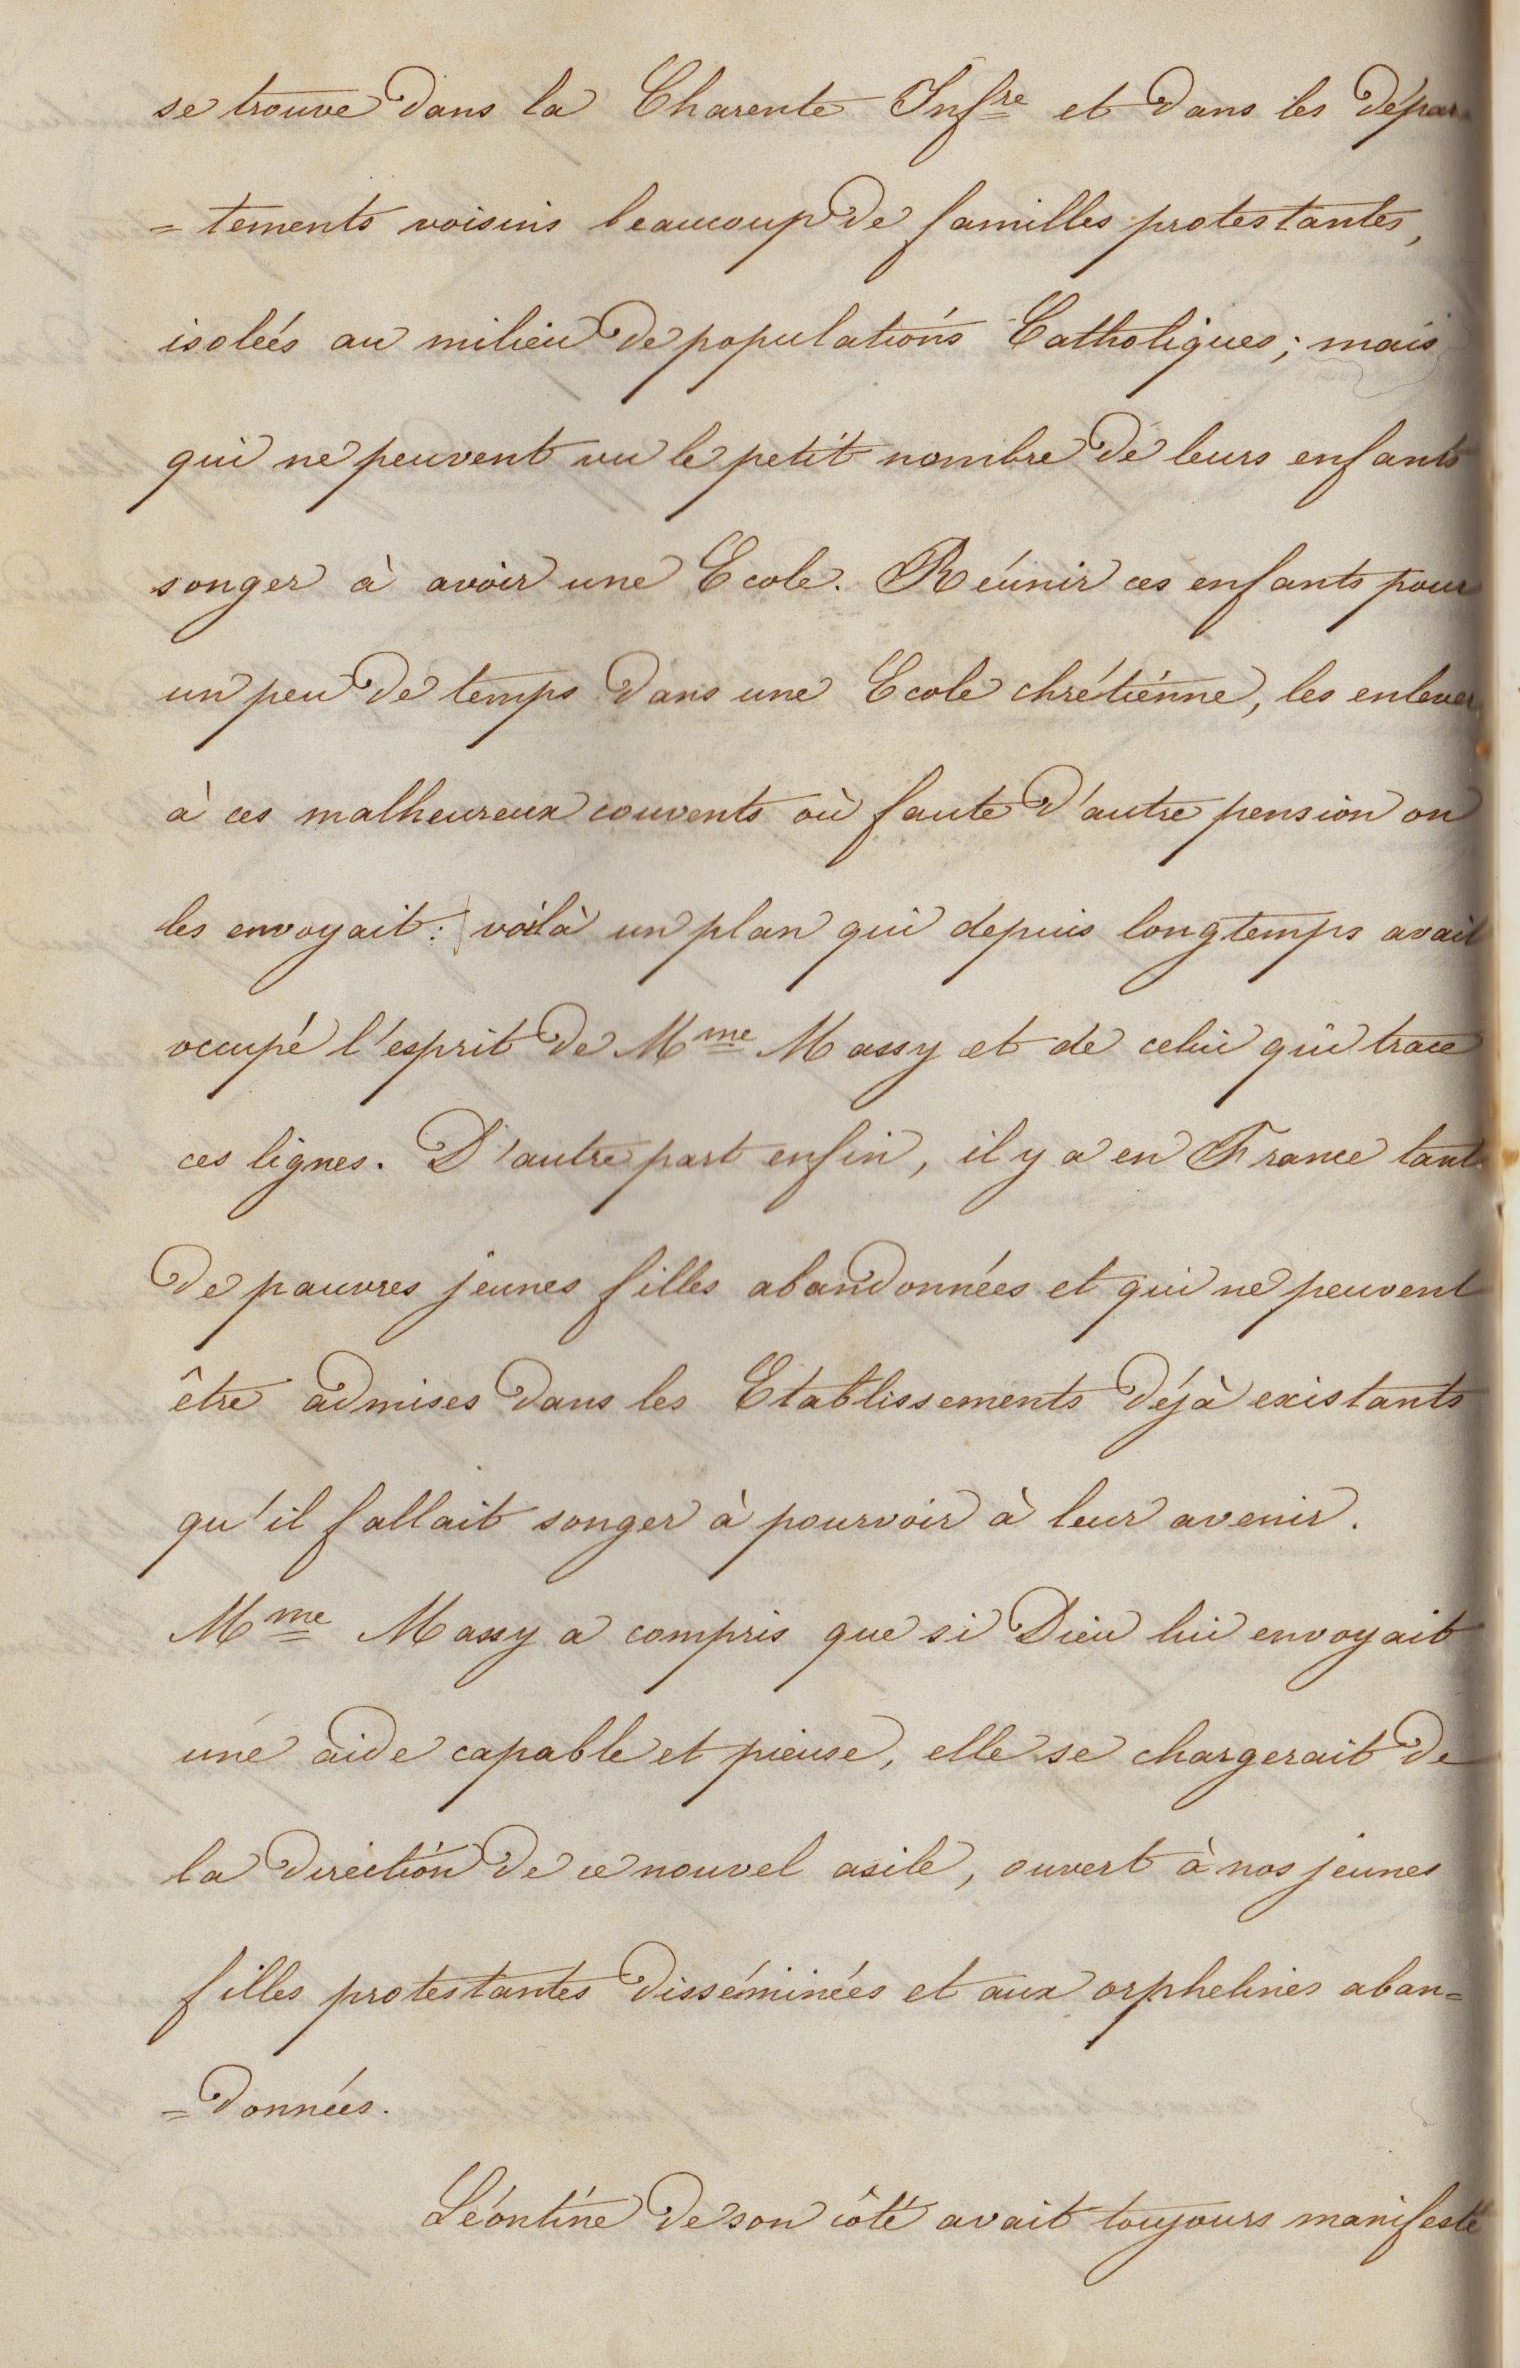 se trouve dans la Charente Infre et dans les dépar-
=tements voisins beaucoup de familles protestantes,
isolées au milieu de populations Catholiques; mais
qui ne peuvent vu le petit nombre de leurs enfants
songer à avoir une Ecole. Réunir ces enfants pour
un peu de temps dans une Ecole chrétienne, les enlever
à ces malheureux couvents où faute d'autre pension on
les envoyait: voilà un plan qui depuis longtemps avait
occupé l'esprit de Mme Massy et de celui qui trace
ces lignes. D'autre part enfin, il y a en France tant
de pauvres jeunes filles abandonnées et qui ne peuvent
être admises dans les Etablissements déjà existants
qu'il fallait songer à pourvoir à leur avenir.
Mme Massy a compris que si Dieu lui envoyait
une aide capable et pieuse, elle se chargerait de
la direction de ce nouvel asile, ouvert à nos jeunes
filles protestantes disséminées et aux orphelines aban=
=données.
Léontine de son côté avait toujours manifesté